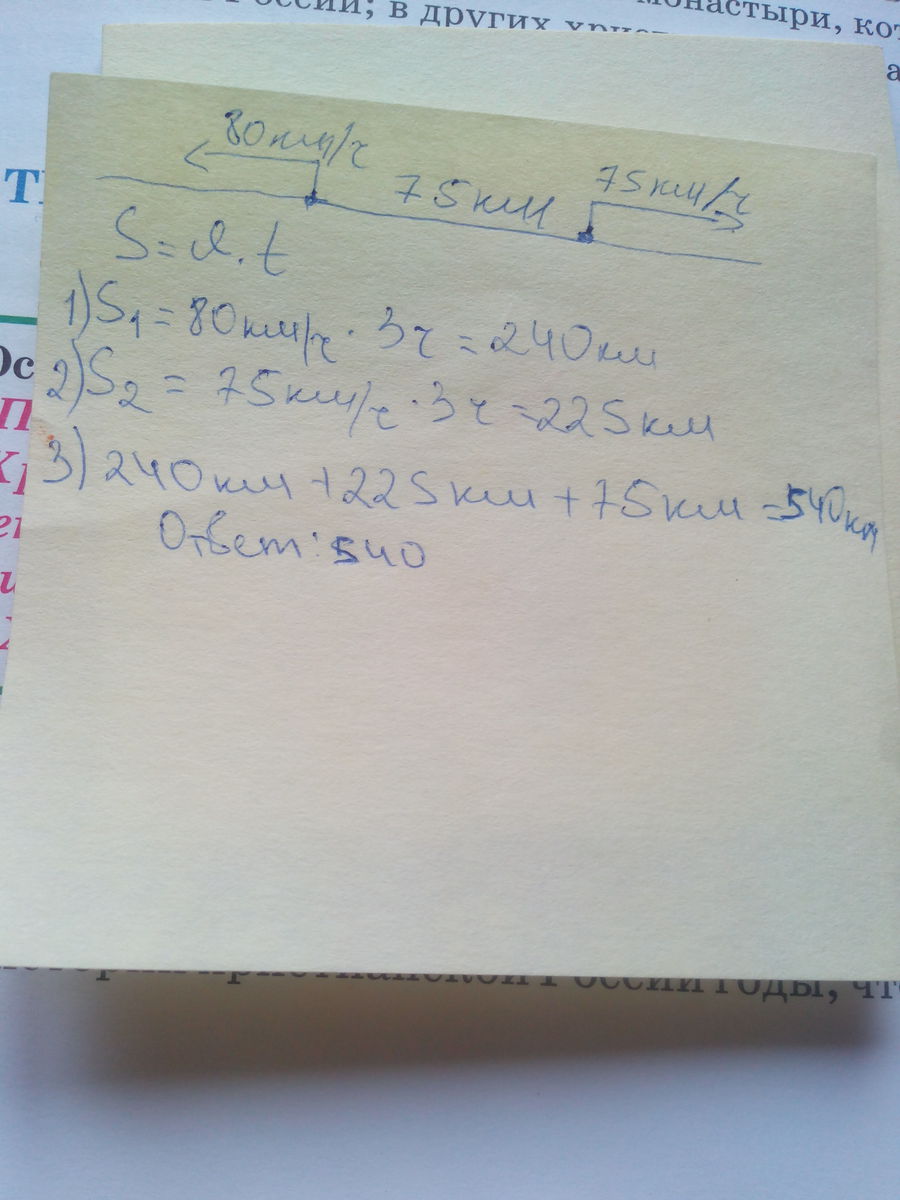 России; в других
монастыри, кот
80км/ч
75км
75км/ч
S=v.t
1) S1 = 80км/ч · 3ч = 240км
2) S2 = 75км/ч · 3ч = 225км
3) 240км + 225км + 75км = 540км
Ответ: 540
России годы, что